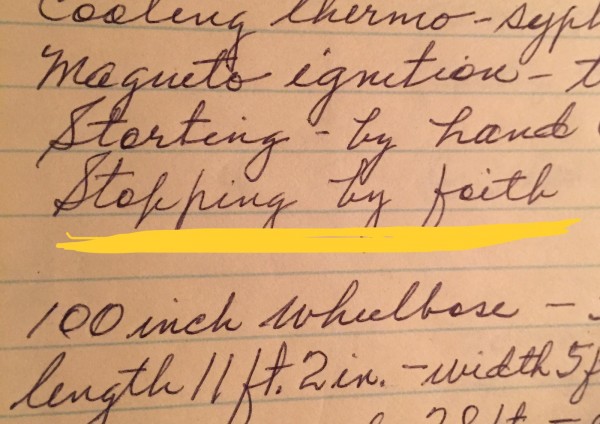 Cooling thermo-syph
Magneto ignition - t
Starting - by hand
Stopping by faith
100 inch wheelbase -
length 11 ft. 2 in. - width 5 f